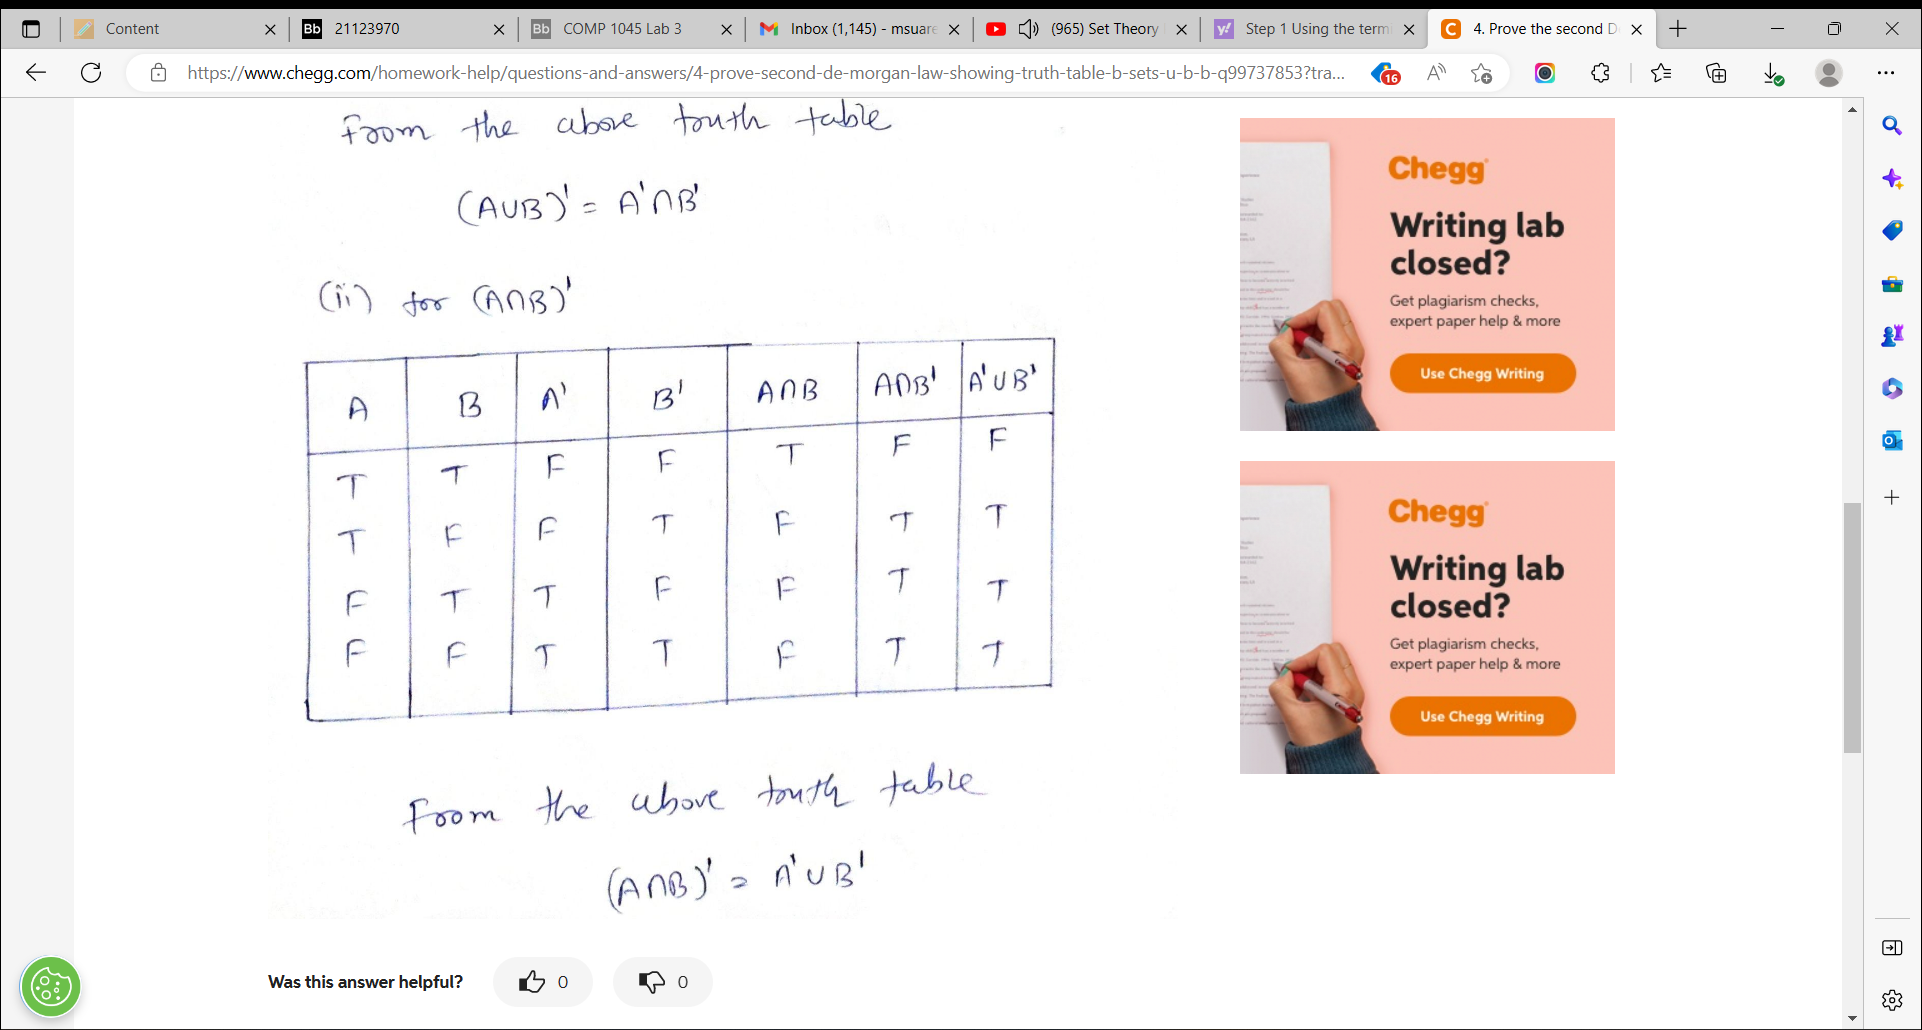 Content
21123970
COMP 1045 Lab 3
Inbox (1,145) - msuare
(965) Set Theory
Step 1 Using the term
4. Prove the second D
https://www.chegg.com/homework-help/questions-and-answers/4-prove-second-de-morgan-law-showing-truth-table-b-sets-u-b-b-q99737853?tra...
16
From the above truth table
(A∪B)' = A'∩B'
(ii) for (A∩B)'
A B A' B' A∩B A∩B' A'∪B'
T T F F T F F
T F F T F T T
F T T F F T T
F F T T F T T
From the above truth table
(A∩B)' = A'∪B'
Was this answer helpful? 0 0
Chegg
Writing lab
closed?
Get plagiarism checks,
expert paper help & more
Use Chegg Writing
Chegg
Writing lab
closed?
Get plagiarism checks,
expert paper help & more
Use Chegg Writing